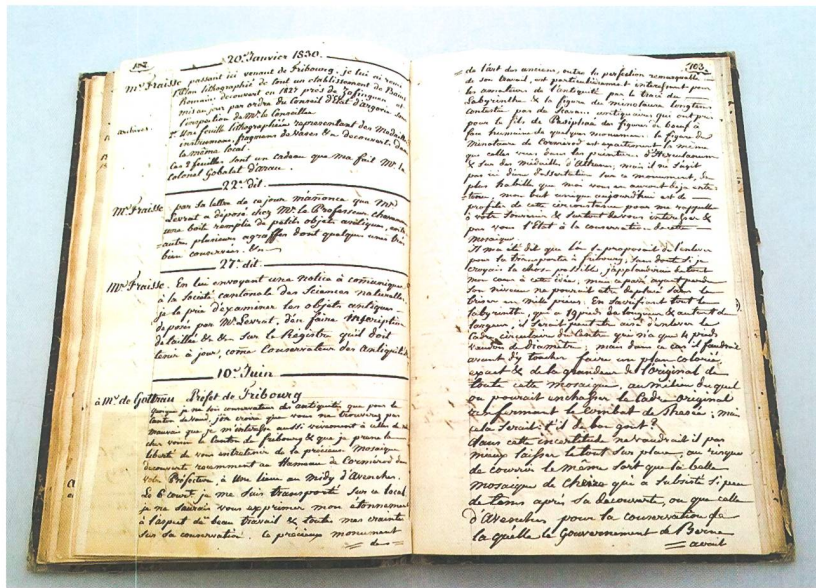 102
20e Janvier 1830.
Mr Fraisse passant ici venant de Fribourg. je lui ai remis
Plan lithographié de tout un établissement de Bains
Romains découvert en 1827 près de Zofinguen et
mis au jour par ordre du Conseil d'Etat d'Argovie sous
l'inspection de Mr le Conseiller
2° Une feuille lithographiée représentant des Medailles
instrumens, fragmens de vases &a decouverts dans
le même local.
Ces 2 feuilles sont un cadeau que m'a fait Mr le
Colonel Gobalet d'arau.
22e dit.
Mr Fraisse. par sa lettre de ce jour m'anonce que Mr
Levrat a déposé chez Mr le Professeur chavannes
une boite remplie de petits objets antiques, entr'
autre plusieurs agraffes dont quelques unes très
bien conservées &a
27e dit.
Mr Fraisse. En lui envoyant une notice à comuniquer
à la Société cantonale des Sciences naturelles,
je le prie d'examiner les objets antiques
déposés par Mr Levrat, d'en faire inscription
détaillée &a &a sur le Registre qu'il doit
tenir à jour, come Conservateur des Antiquités
10e Juin
à Mr de Gottrau Préfet de Fribourg
quoique je ne sois conservateur des antiquités que pour le
Canton de Vaud, j'ose croire que vous ne trouverez pas
mauvais que je m'intéresse aussi vivement à celles de
cher voisin le Canton de fribourg & que je prenne la
liberté de vous entretenir de la précieuse Mosaique
decouverte récemment au Hameau de Cormérod dans
votre Préfecture, à Une lieue au midy d'Avenches.
Le 6 court je me suis transporté sur ce local
je ne saurais vous exprimer mon etonnement
à l'aspect du beau travail & toutes mes craintes
sur sa conservation. ce précieux monument
des
103
de l'art des anciens, outre la perfection remarquable
de son travail, est particulièrement intéressant pour
les amateurs de l'antiquité par le tracé du
Labyrinthe & la figure du minotaure longtems
contestée par des savans antiquaires, qui ont pris
pour le fils de Pasiphaé des figures de boeuf à
face humaine de quelques monumens. la figure du
Minotaure de Cormérod est exactement la même
que celle vue dans les peintures d'Herculanum
& sur des médailles d'Athènes, mais il ne s'agit
pas ici d'une dissertation sur ce monument, de
plus habiles que moi vous en auront déja entre
tenu, mon but unique aujourd'hui est de
profiter de cette circonstance pour me rappeller
à votre souvenir & surtout de vous intéresser &
par vous l'Etat à la conservation de cette
mosaique
Il m'a été dit que l'on se proposait de l'enlever
pour la transporter à fribourg, sans doute si je
croyais la chose possible j'applaudirais de tout
mon coeur à cette idée, mais ce pavé ayant perdu
son niveau ne pourra être déplacé sans le
briser en mille pièces. En sacrifiant tout le
labyrinthe, qui a 19 pieds de longueur & autant de
largeur, il serait peut être aisé d'enlever le
Cadre circulaire du Centre qui n'a que 4 pieds
environ de diamètre; mais dans ce cas il faudroit
avant d'y toucher faire un plan colorié,
exact & de la grandeur de l'original de
toute cette mosaique, au milieu duquel
on pourrait enchasser le Cadre original
renfermant le combat de Thesée; mais
cela serait-t'il de bon goût?
dans cette incertitude ne vaudrait il pas
mieux laisser le tout sur place, au risque
de courrir le même sort que la belle
mosaique de Cheire qui a subsisté si peu
de tems après sa découverte, ou que celle
d'Avenches pour la conservation de
la quelle le Gouvernement de Berne
avait